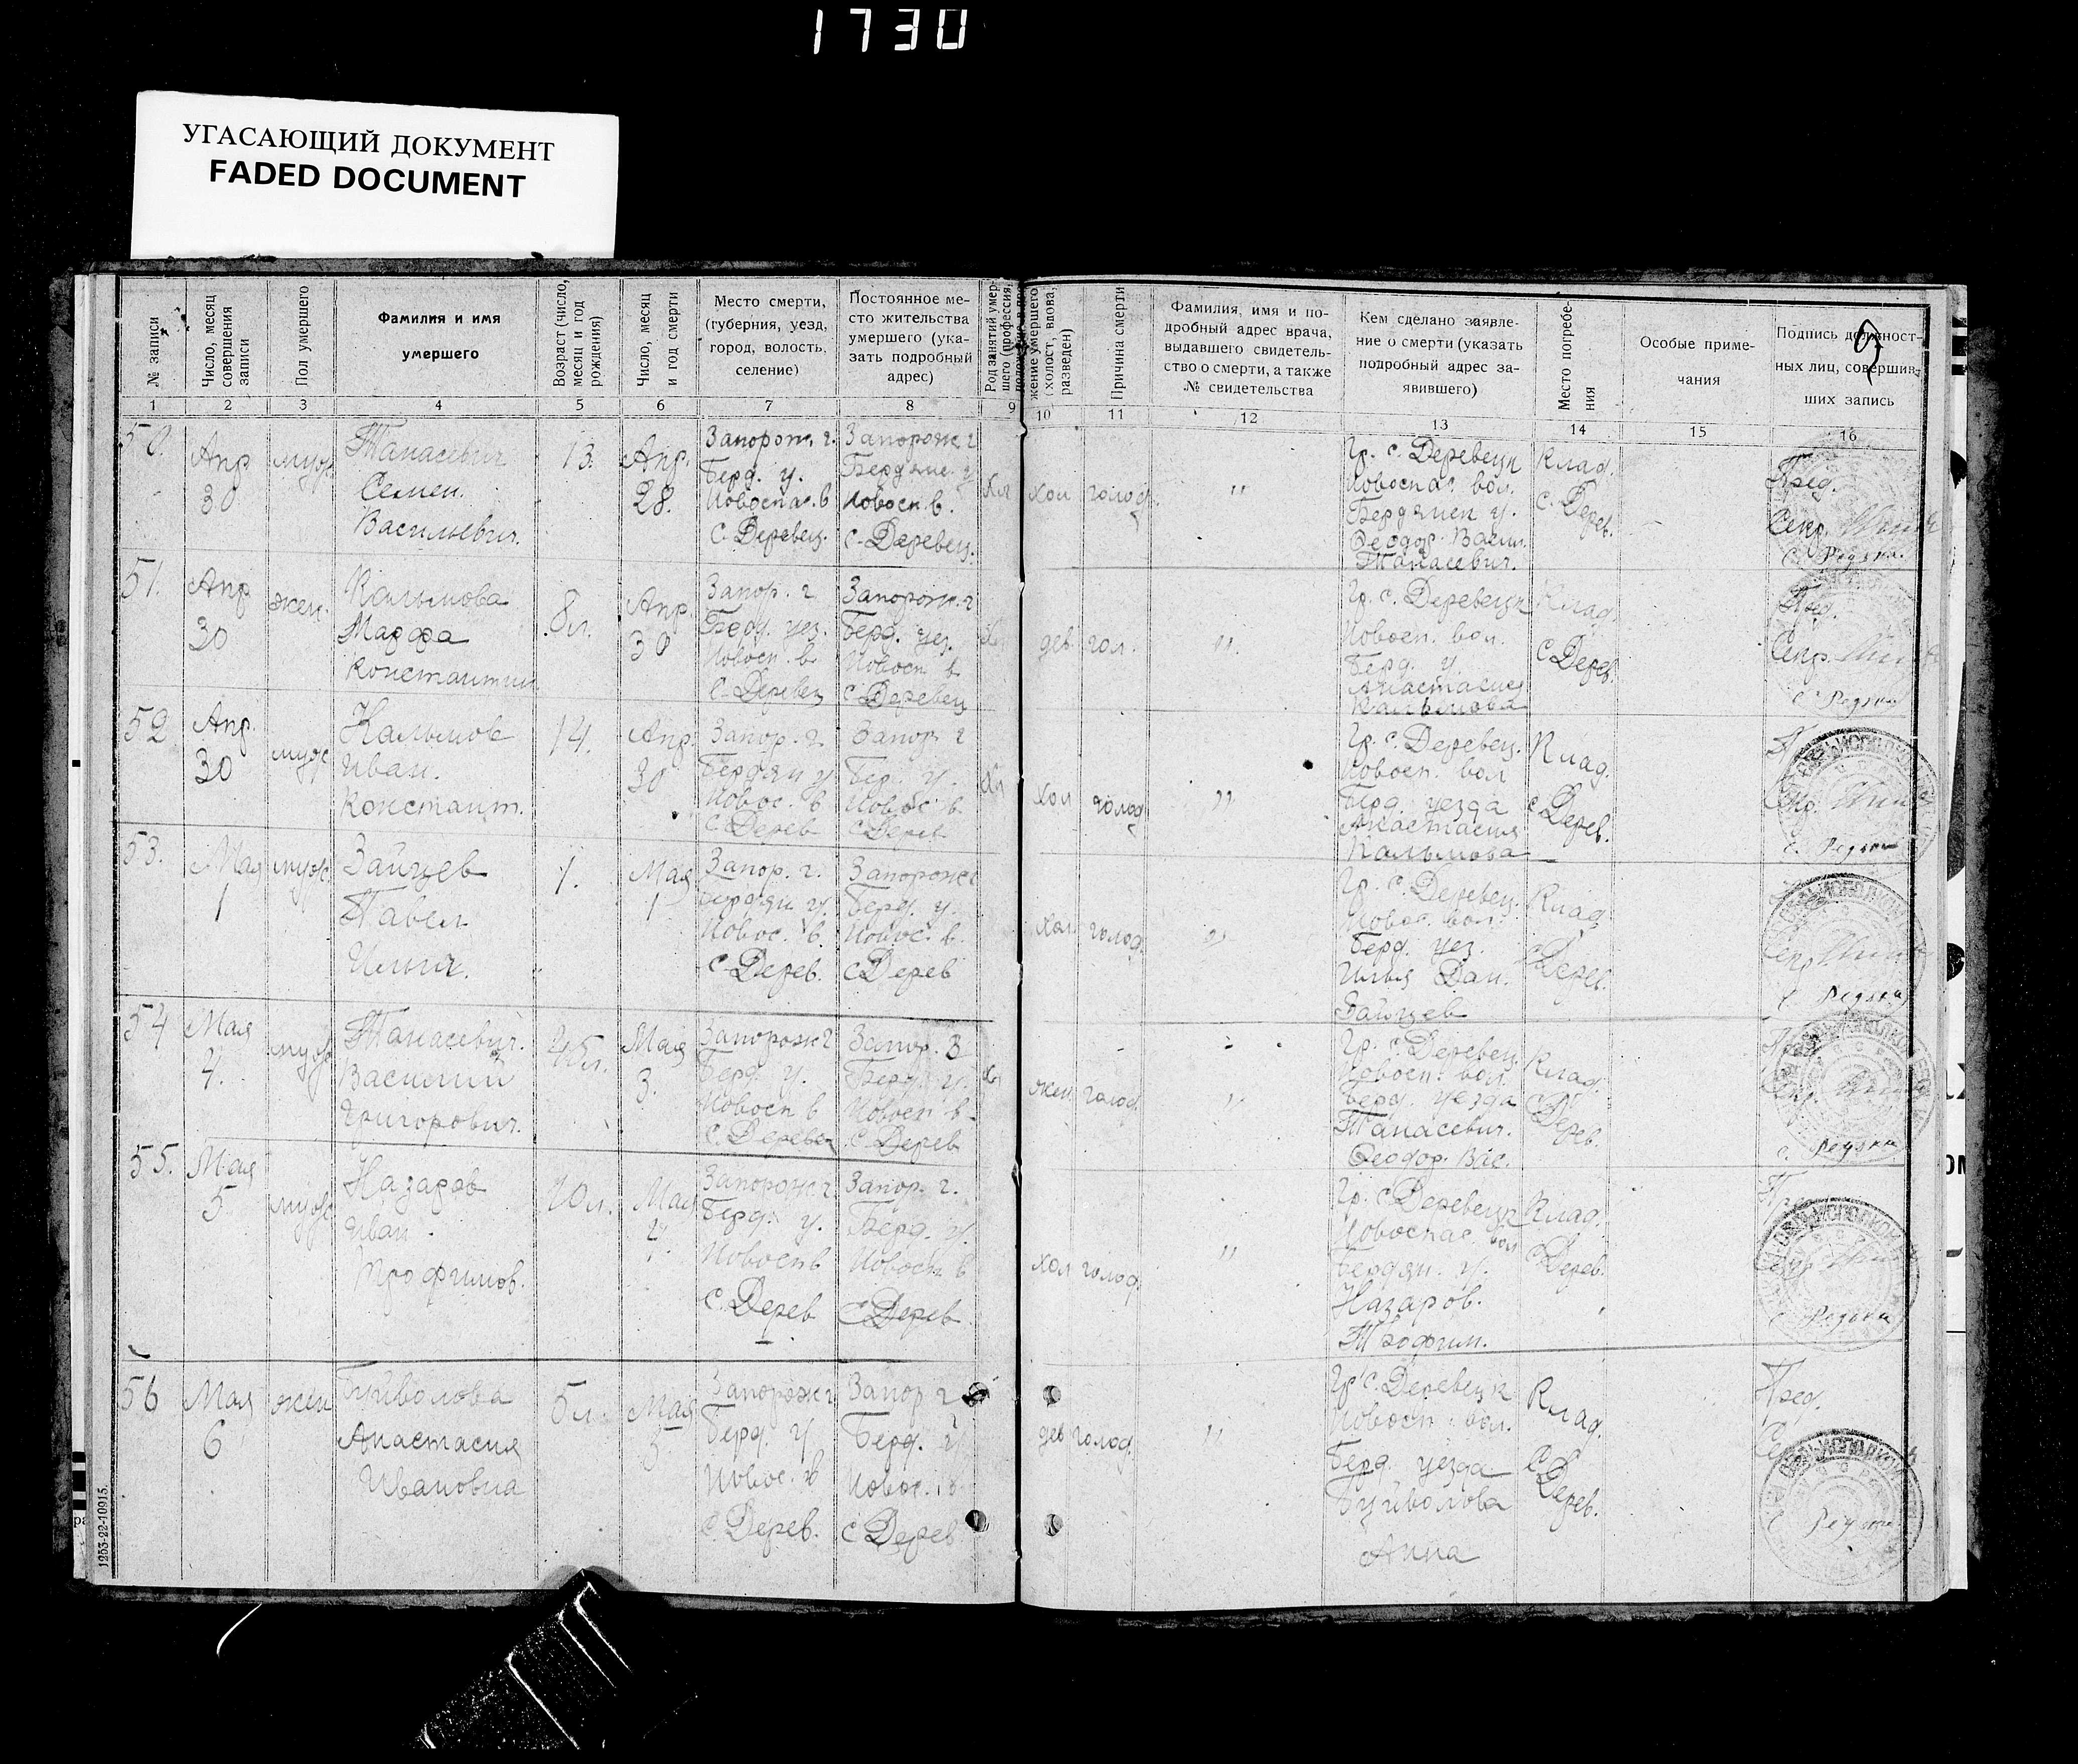 1730
УГАСАЮЩИЙ ДОКУМЕНТ
FADED DOCUMENT
№ записи
Число, месяц
совершения
записи
Пол умершего
Фамилия и имя
умершего
Возраст (число,
месяц и год
рождения)
Число, месяц
и год смерти
Место смерти,
(губерния, уезд,
город, волость,
селение)
Постоянное ме-
сто жительства
умершего (ука-
зать подробный
адрес)
Род занятий умер-
шего (профессия,
жение умершего
(холост, вдова,
разведен)
Причина смерти
Фамилия, имя и по-
дробный адрес врача,
выдавшего свидетель-
ство о смерти, а также
№ свидетельства
Кем сделано заявле-
ние о смерти (указать
подробный адрес за-
явившего)
Место погребе-
ния
Особые приме-
чания
Подпись должност-
ных лиц, совершив-
ших запись
1 2 3 4 5 6 7 8 9 10 11 12 13 14 15 16
50.
Апр
30
муж
Танасевич
Семен.
Васильевич.
13.
Апр.
28.
Запорож. г.
Берд. у.
Новоспас. в
с. Деревец.
Запорож г
Бердянс. у
Новосп в.
с. Деревец.
хол
голод.
"
Гр. с. Деревецк
Новоспас. вол.
Бердянск у.
Феодор Васил.
Танасевич.
Клад.
с. Дерев.
Пред.
Секр.
51.
Апр
30
жен.
Кальмова
Марфа
Константин
8л.
Апр.
30
Запор. г.
Берд. уез.
Новосп. в.
с. Деревец
Запорож. г
Берд. уез.
Новосп в.
с Деревец
дев
гол.
"
Гр. с. Деревецк
Новосп. вол.
Берд. у.
Анастасия
Кальмова
Клад.
с Дерев.
Пред.
Секр.
52
Апр.
30
муж
Кальмов
Иван.
Констант.
14.
Апр.
30
Запор. г.
Бердян у
Новос. в
с Дерев
Запор г
Бер. у.
Новос в.
с Дерев
хол
голод
"
Гр. с. Деревец.
Новосп. вол
Берд. уезда
Анастасия
Кальмова
Клад.
с Дерев.
53.
Мая
1
муж.
Зайцев
Павел
Ильич.
1.
Мая
1
Запор. г.
Бердян у.
Новос. в.
с Дерев.
Запорож г
Берд. у.
Новос. в.
с Дерев
хол.
голод.
"
Гр. с. Деревец.
Новос. вол.
Берд. уез.
Илья Дан.
Зайцев
Клад.
с Дерев.
54
Мая
4.
муж
Танасевич.
Василий
Григорович.
45л.
Мая
3.
Запорож г
Берд. у.
Новосп в
с. Деревец
Запор. г
Берд. у.
Новосп в
с Дерев
жен
голод.
"
Гр. с. Деревец
Новосп. вол.
Берд. уезда
Танасевич.
Феодор. Вас.
Клад.
с Дерев.
55.
Мая
5
муж
Назаров
Иван.
Трофимов.
Мая
4.
Запорож г.
Берд. у.
Новосп в
с. Дерев
Запор. г.
Берд. у.
Новосп в
с Дерев.
хол
голод.
"
Гр. с Деревецк
Новоспас. вол
Бердян. у.
Назаров.
Трофим.
Клад.
с Дерев.
Пред
56
Мая
6
жен
Буйволова
Анастасия
Ивановна
5л.
Мая
5
Запорож г
Берд. у
Новос. в
с Дерев.
Запор г
Берд. у
Новос. в
с Дерев
дев
голод.
"
Гр. с. Деревецк
Новосп. вол.
Берд. уезда
Буйволова
Анна
Клад.
с Дерев.
Пред.
1253-22-10915.